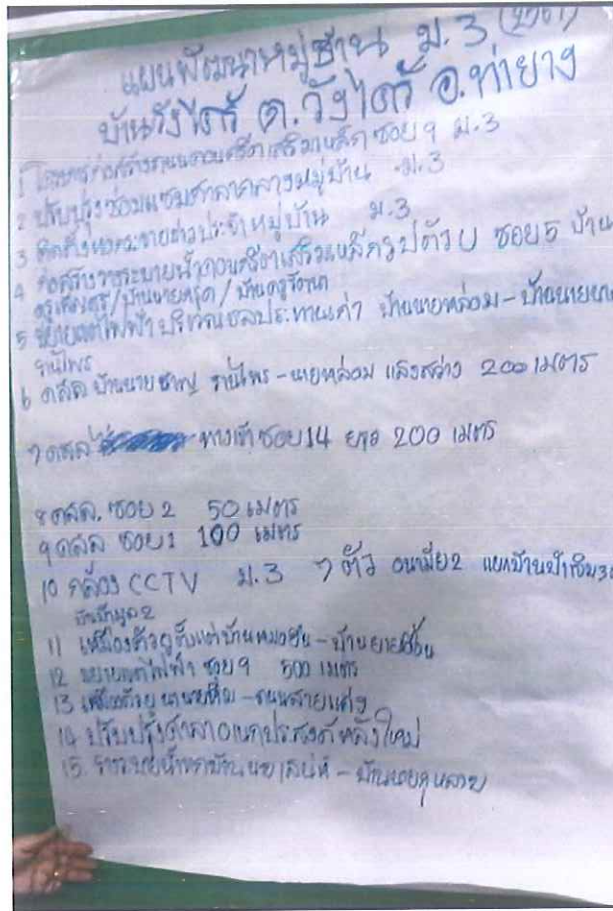 แผนพัฒนาหมู่บ้าน ม.3 (2561)
บ้านวังไคร้ ต.วังไคร้ อ.ท่ายาง
1 โครงการก่อสร้างถนนคอนกรีตเสริมเหล็ก ซอย 9 ม.3
2 ปรับปรุงซ่อมแซมศาลากลางหมู่บ้าน ม.3
3 ติดตั้งหอกระจายข่าวประจำหมู่บ้าน ม.3
4 ก่อสร้างรางระบายน้ำคอนกรีตเสริมเหล็กรูปตัว U ซอย 5 บ้าน
5 ขยายเขตไฟฟ้า บริเวณชลประทานเก่า บ้านนายหล่อม - บ้านนาย
ร้านไพร
6 คสล บ้านนายชาญ ร้านไพร - นายหล่อม แสงสว่าง 200 เมตร
7 คสล ทางเข้าซอย 14 ยาว 200 เมตร
8 คสล. ซอย 2 50 เมตร
9 คสล ซอย 1 100 เมตร
10 กล้อง CCTV ม.3 7 ตัว อนามัย 2 แยกบ้าน
11 เหมืองตัวยูตั้งแต่บ้านหมอ - บ้านยาย
12 ขยายเขตไฟฟ้า ซอย 9 500 เมตร
13 เหมืองตัวยู - ถนนสายแดง
14 ปรับปรุงศาลาอเนกประสงค์หลังใหม่
15. รางระบายน้ำจากบ้านนายเสน่ห์ - บ้าน